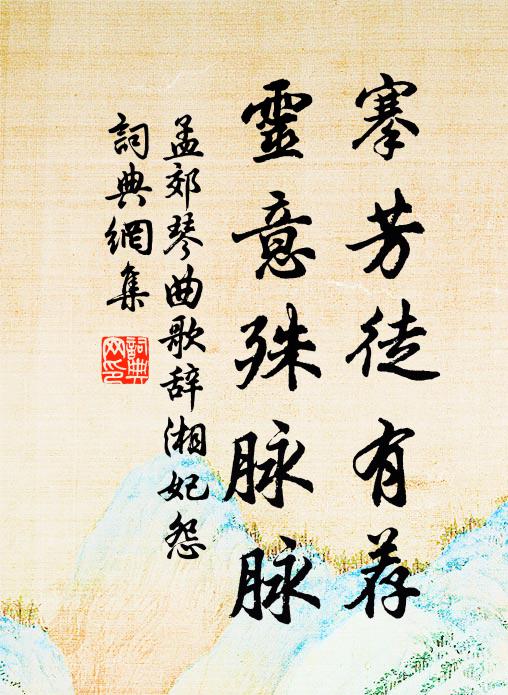 搴芳徒有荐
靈意殊脉脉
孟郊琴曲歌辞湘妃怨
詞典網集
詞典網印